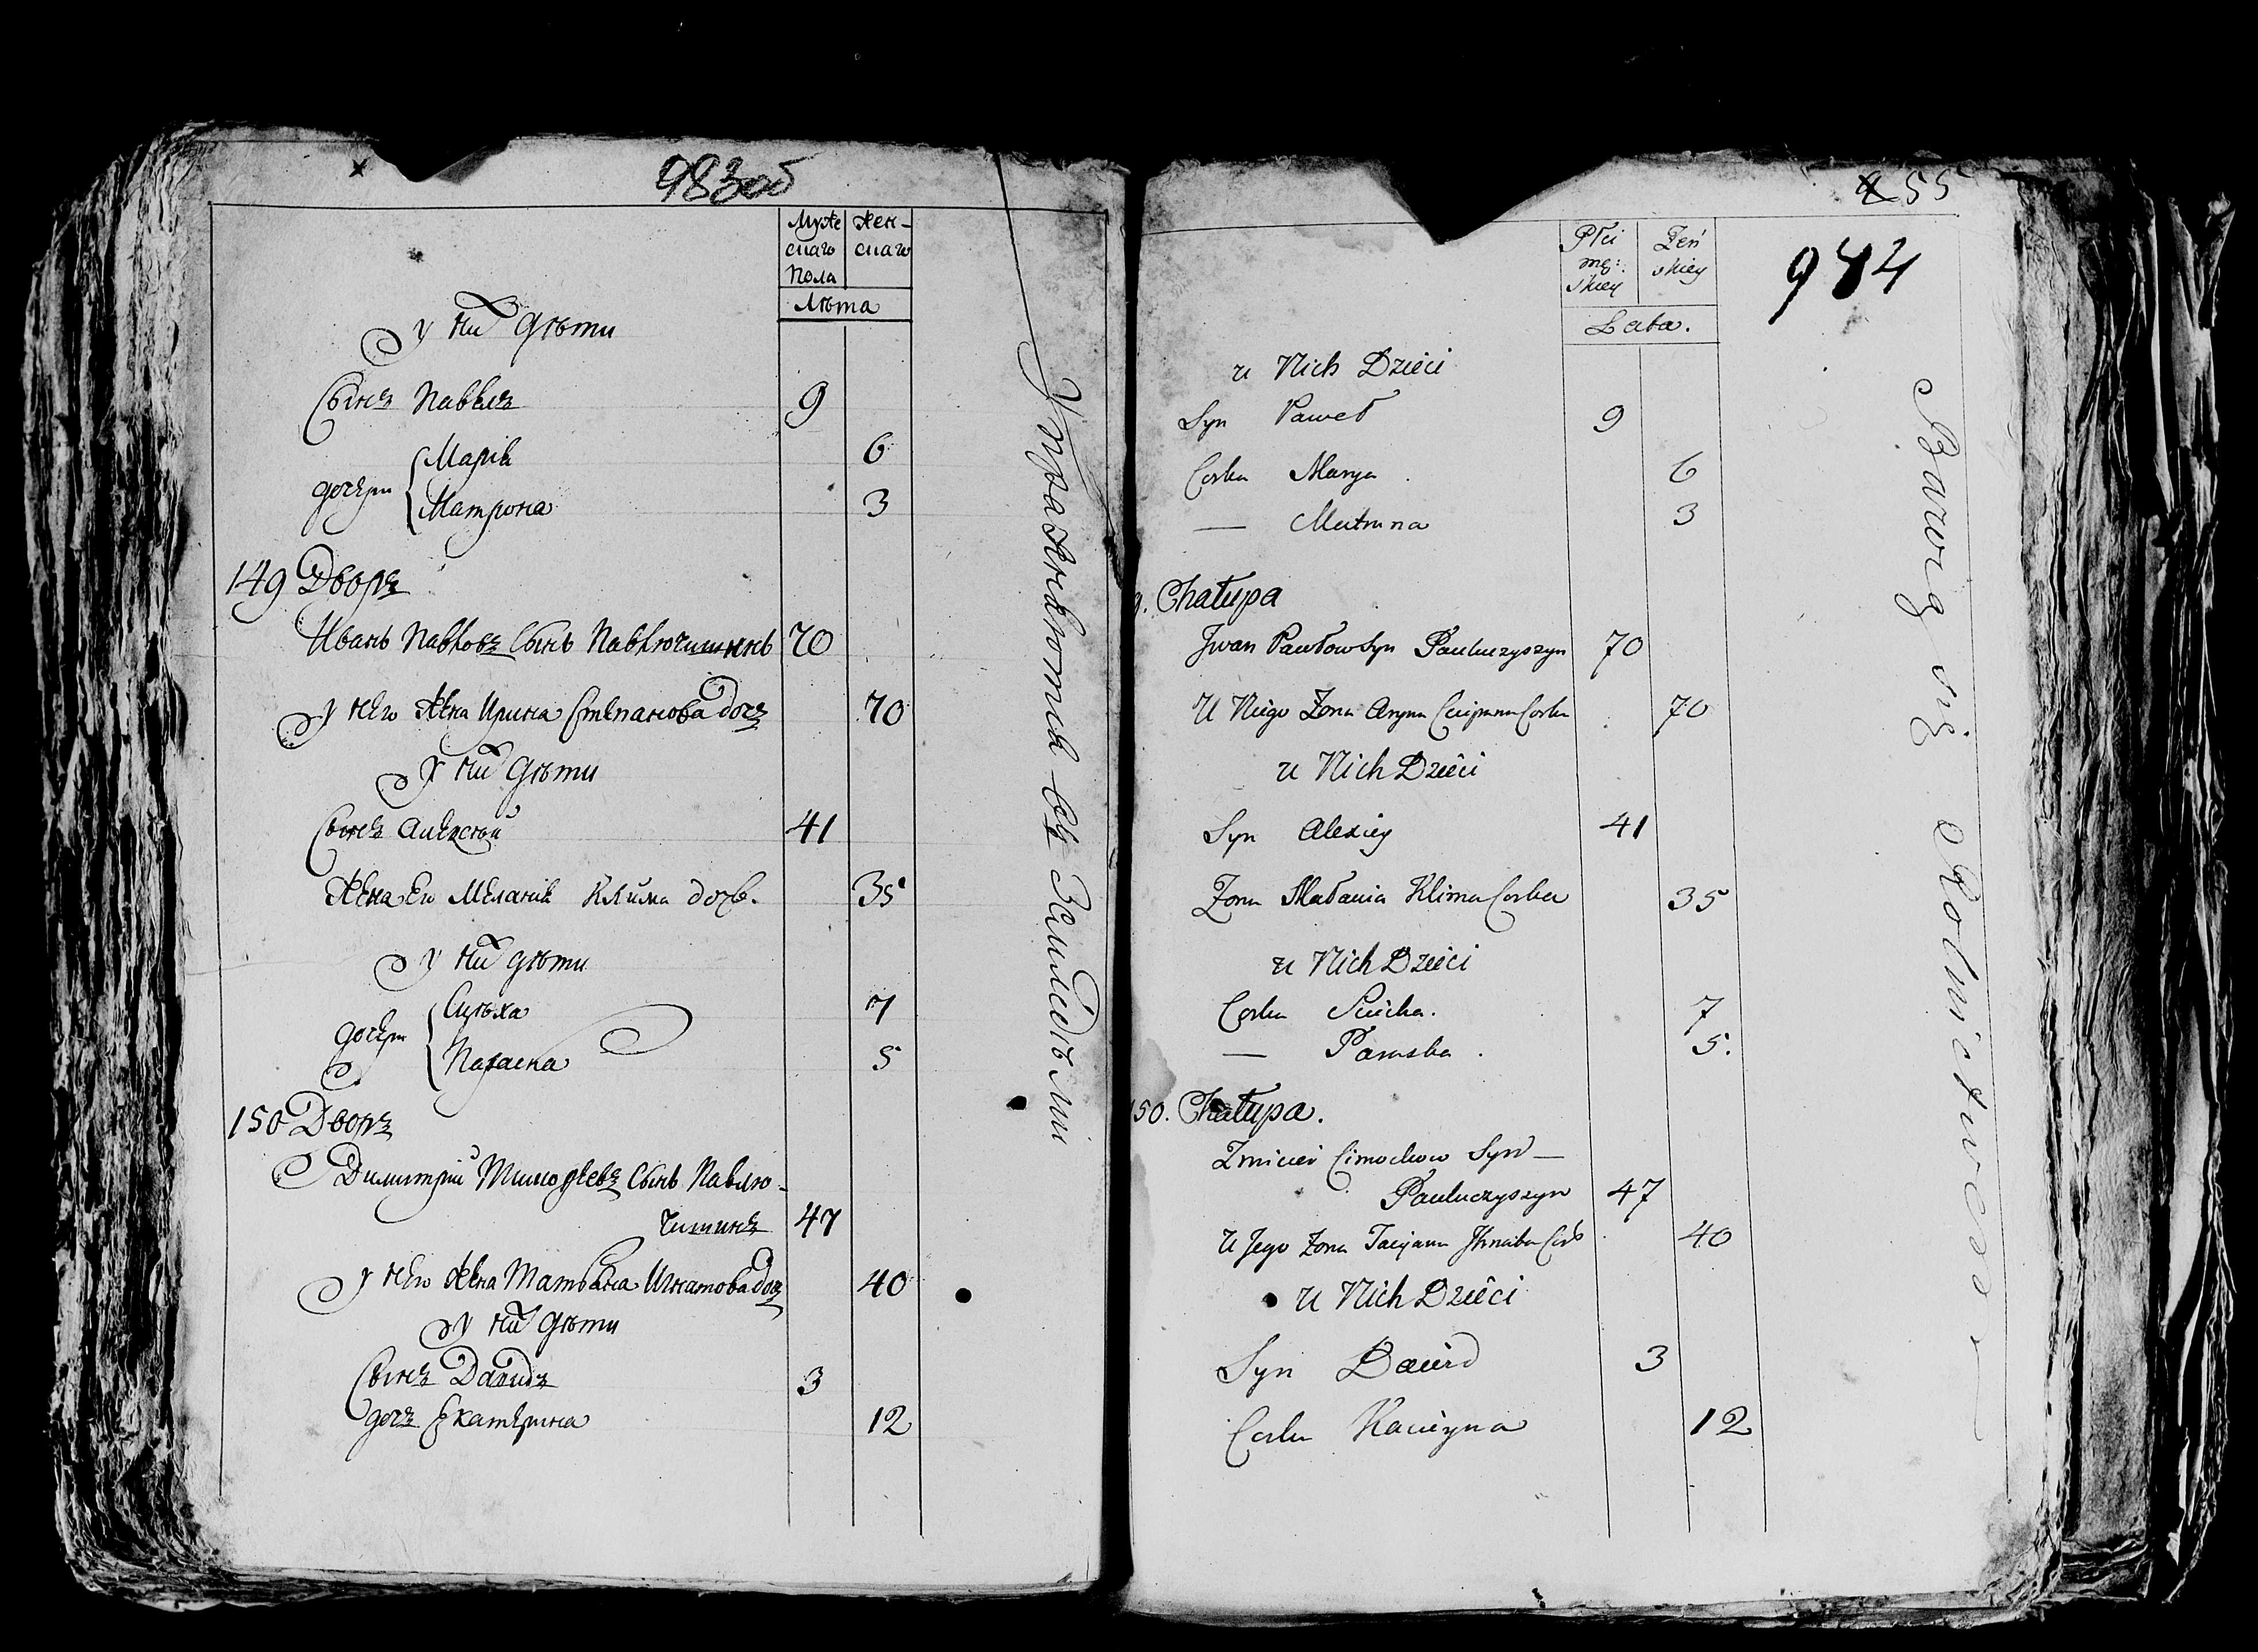 983об
Муже
скаго
пола
Жен-
скаго
Лѣта
У них дѣти
Сынъ Павелъ 9
дочери Марія 6
Матрона 3
149 Дворъ
Иванъ Павловъ Сынъ Павлючишинъ 70
У него жена Ирина Степанова дочъ 70
У них дѣти
Сынъ Алексѣй 41
Жена его Меланія Клима дочь. 35
У них дѣти
дочери 7
Параска 5
150 Дворъ
Димитрій Тимофеевъ Сынъ Павлю-
чишинъ 47
У него жена Татьяна Игнатова дочъ 40
У них дѣти
Сынъ Давидъ 3
дочъ Екатерина 12
Упражняются въ Земледѣліи
55
984
Płci
mę:
skiey
Żeń
skiey
Lata.
u Nich Dzieci
Syn Paweł 9
Corka Marya . 6
— Matruna 3
9. Chałupa
Jwan Pawłow Syn Pauluczyszyn 70
U Niego Żona Aryna Corka 70
u Nich Dzieci
Syn Alexiey 41
Żona Małania Klima Corka 35
u Nich Dzieci
Corka 7
— Paraska . 5.
150. Chałupa.
Zmicier Cimochow Syn —
Pauluczyszyn 47
U Jego Żona Tacyana Jhnata Cor: 40
u Nich Dzieci
Syn Dawid 3
Corka Kacieryna 12
Bawią się Rolnictwem